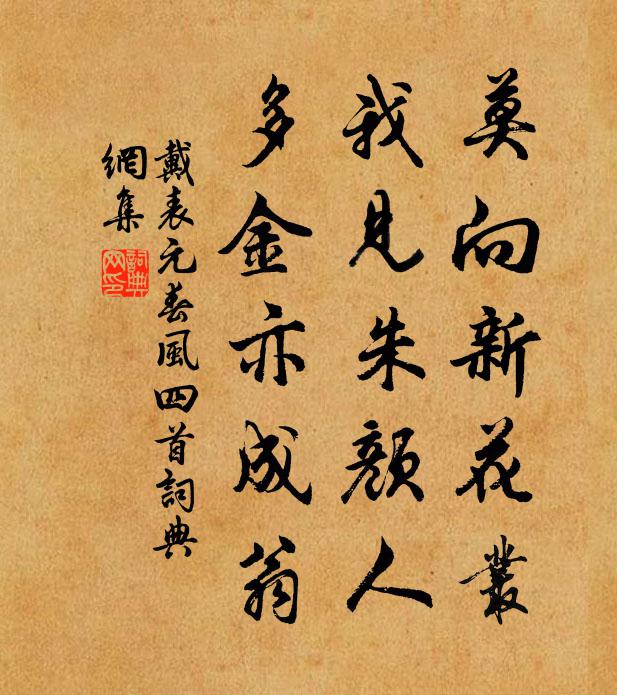 莫向新花叢
我見朱顏人
多金亦成翁
戴表元春風四首詞典
網集
詞典
网印